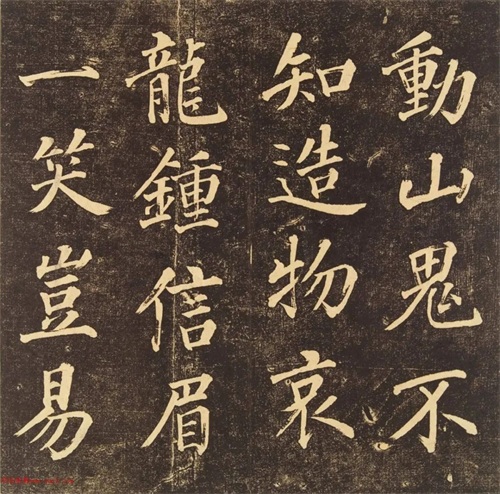 動山鬼不
知造物哀
龍鍾信眉
一笑豈易